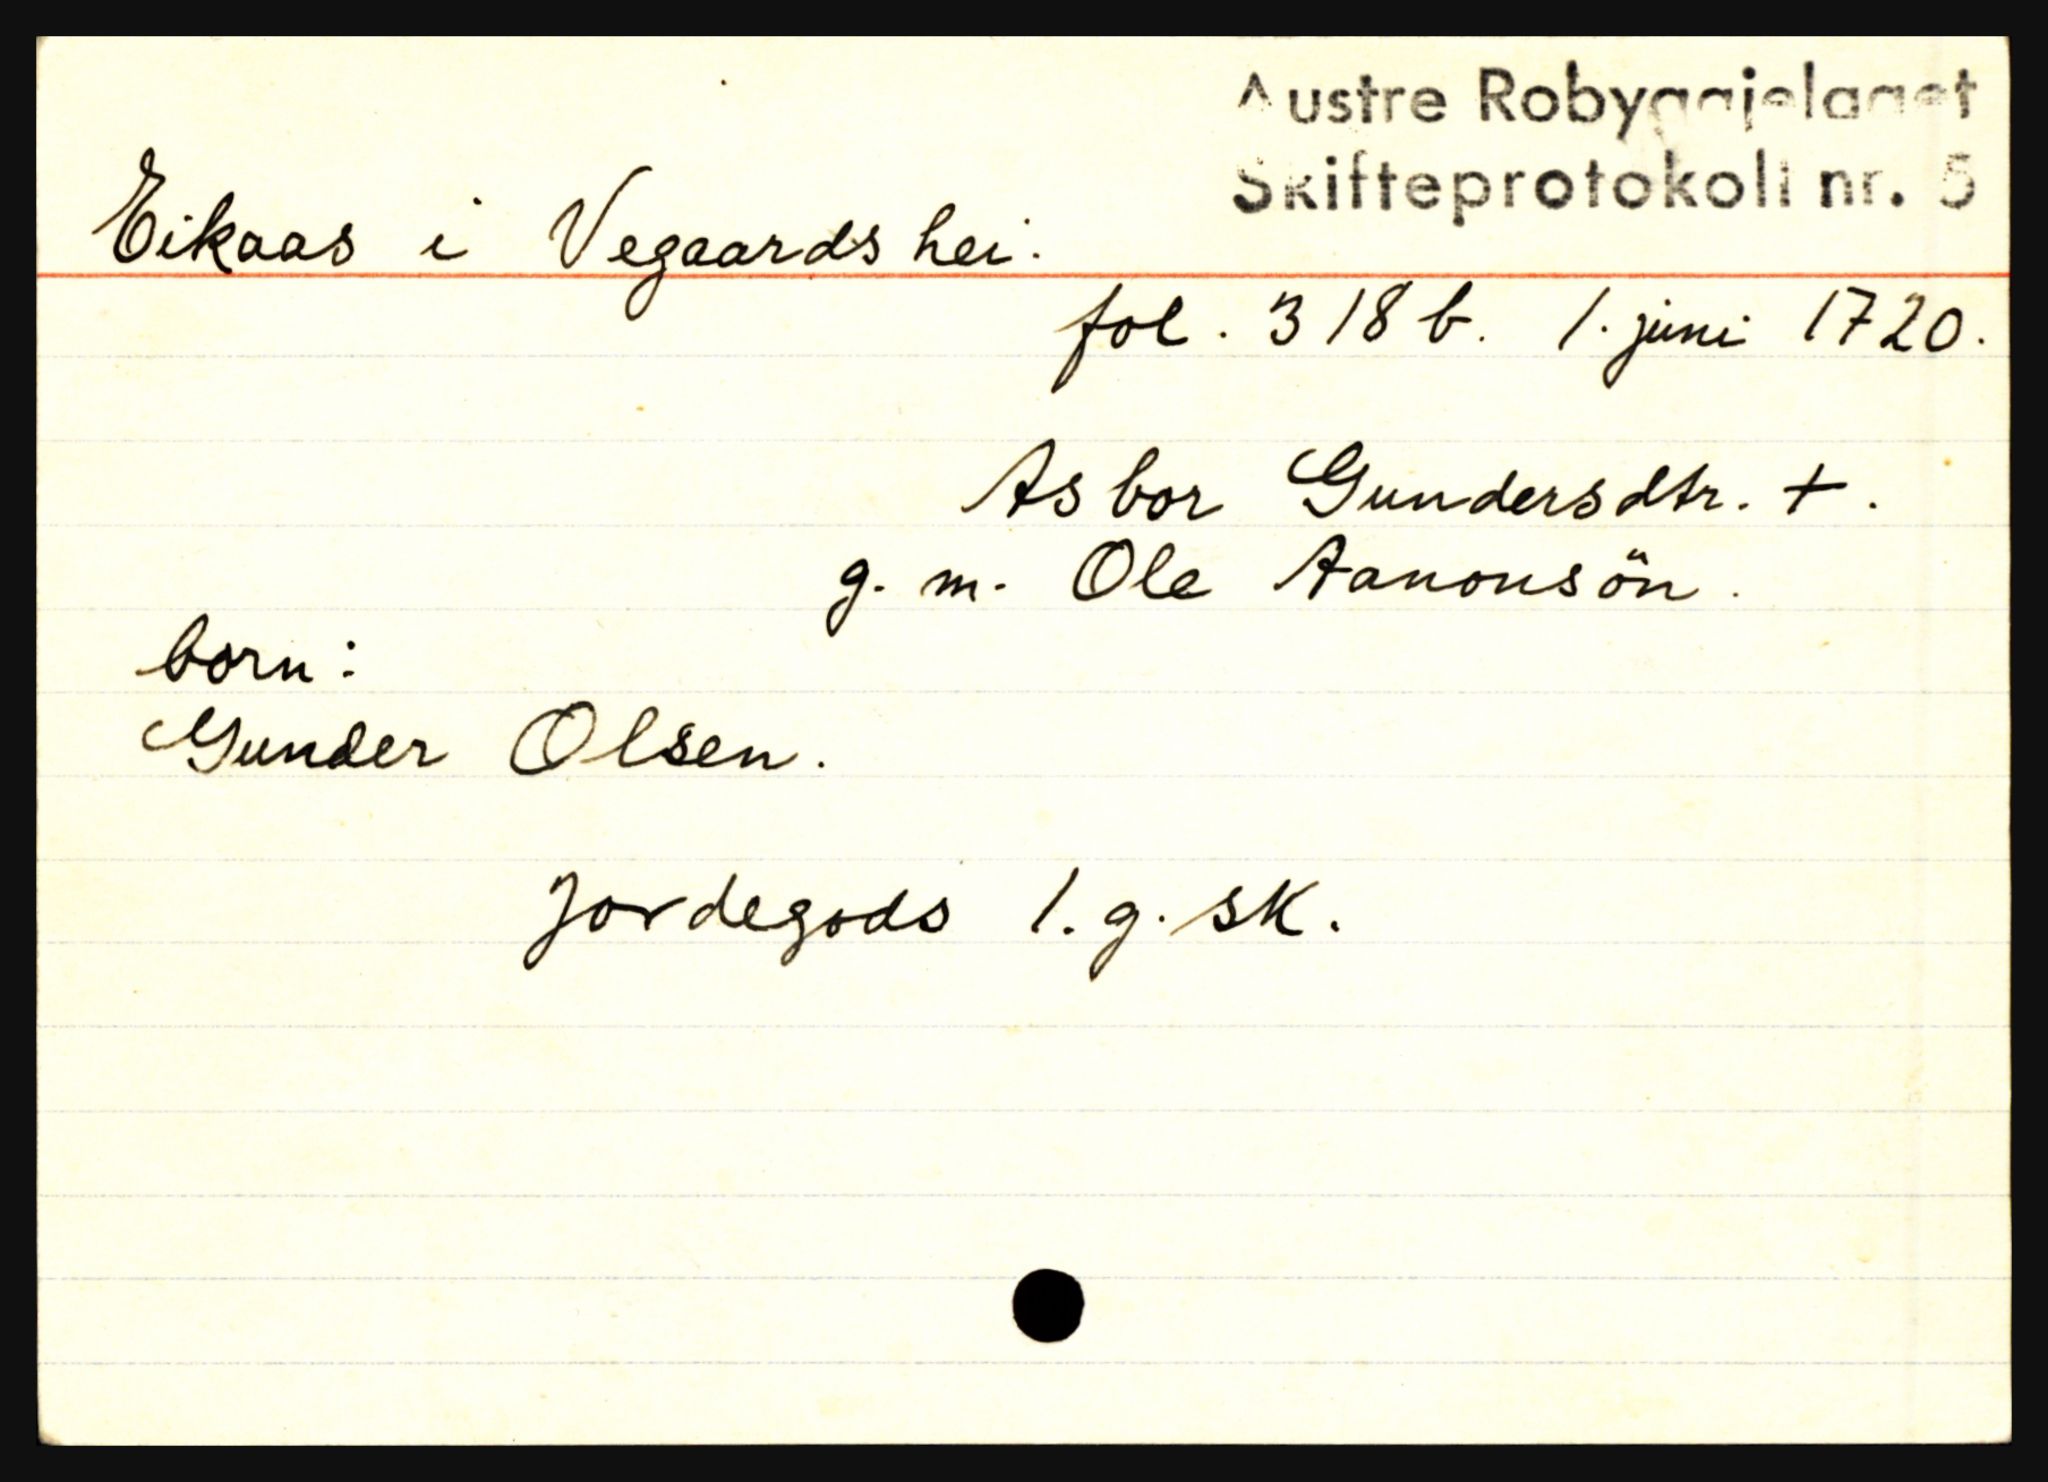 Austre Robyggjelaget
Skifteprotokoll nr. 5
Eikaas i Vegaardshei.
fol. 318 b. 1. juni 1720.
Asbor Gundersdtr. +.
g. m. Ole Aanonsön.
born:
Gunder Olsen.
Jordegods 1. g. sk.